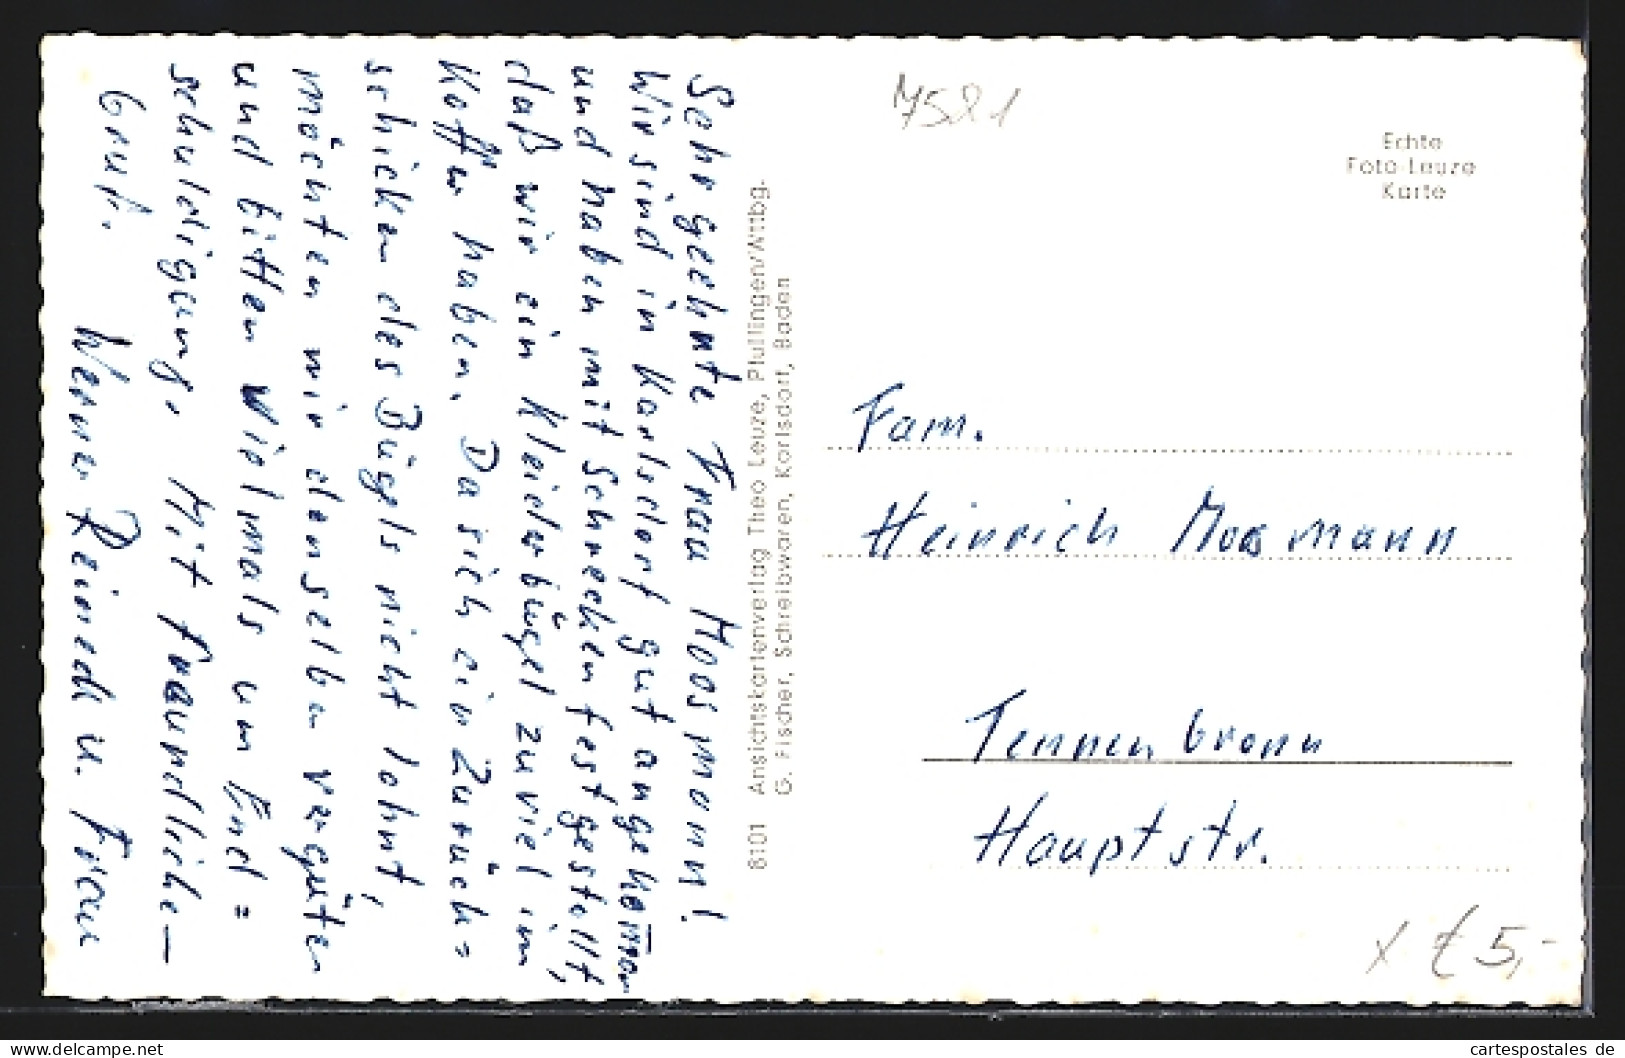 7521
Echte
Foto-Leuze
Karte
Sehr geehrte Frau Moosmann!
Wir sind in Karlsdorf gut angekom̅en
und haben mit Schrecken festgestellt,
daß wir ein Kleiderbügel zuviel im
Koffer haben. Da sich ein Zurück=
schicken des Bügels nicht lohnt,
möchten wir denselben vergüten
und bitten vielmals um End=
schuldigung. Mit freundliche—
Gruß.
Werner Reinedl u. Frau
6101 Ansichtskartenverlag Theo Leuze, Pfullingen/Wttbg.
G. Fischer, Schreibwaren, Karlsdorf, Baden
Fam.
Heinrich Moosmann
Tennenbronn
Hauptstr.
x € 5,-
www.cartespostales.de